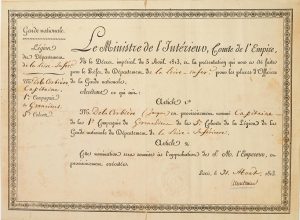 Garde nationale.
Légion
du Département
de la Loire-Infre
Capitaine
1re Compagnie
de Grenadiers
Cohorte
Le Ministre de l'Intérieur, Comte de l'Empire,
Vu le Décret impérial du 5 Avril 1813, et la présentation qui nous a été faite
par le Préfet du Département de la Loire-Infre pour les places d'Officiers
de la Garde nationale.
Arrête ce qui suit :
Article 1er
M. est provisoirement nommé Capitaine
de la 1re Compagnie de Grenadiers de la Cohorte de la Légion de la
Garde nationale du Département de la Loire Inférieure.
Article 2
Cette nomination sera soumise à l'approbation de S. M. l'Empereur, et
provisoirement exécutée.
Paris, le 31 1813